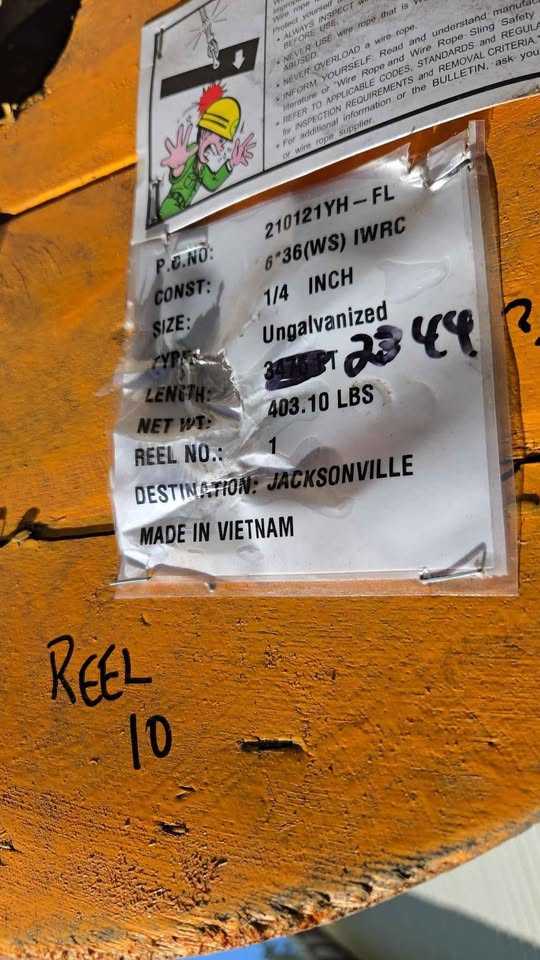 • ALWAYS INSPECT
BEFORE
• NEVER USE wire rope that is
ABUSED.
• NEVER OVERLOAD a wire rope.
• INFORM YOURSELF: Read and understand
literature or "Wire Rope and Wire Rope Sling Safety
REFER TO APPLICABLE CODES, STANDARDS and
for INSPECTION REQUIREMENTS and REMOVAL CRITERIA.
• For additional information or the BULLETIN, ask you
or wire rope supplier.
P.O.NO: 210121YH-FL
CONST: 6*36(WS) IWRC
SIZE: 1/4 INCH
TYPE: Ungalvanized
LENGTH: 2344
NET WT: 403.10 LBS
REEL NO.: 1
DESTINATION: JACKSONVILLE
MADE IN VIETNAM
REEL
10